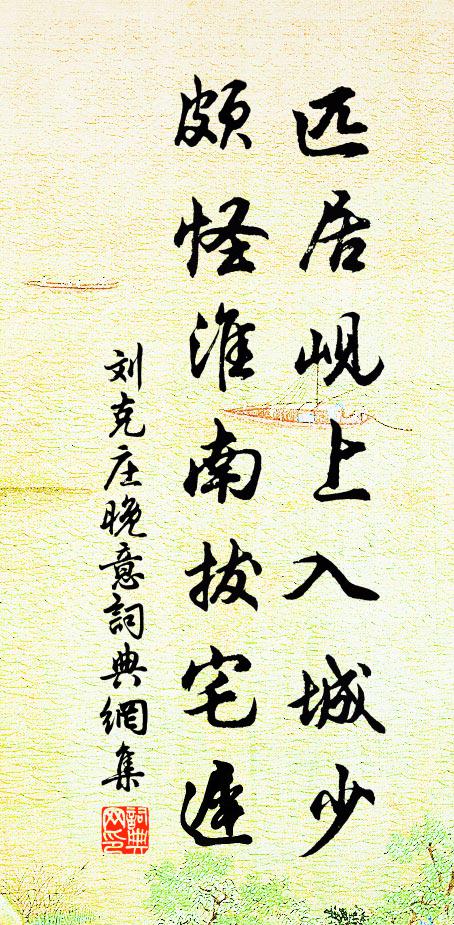 匹居岘上入城少
颇怪淮南拔宅遲
刘克庄晚意詞典網集
詞典網印